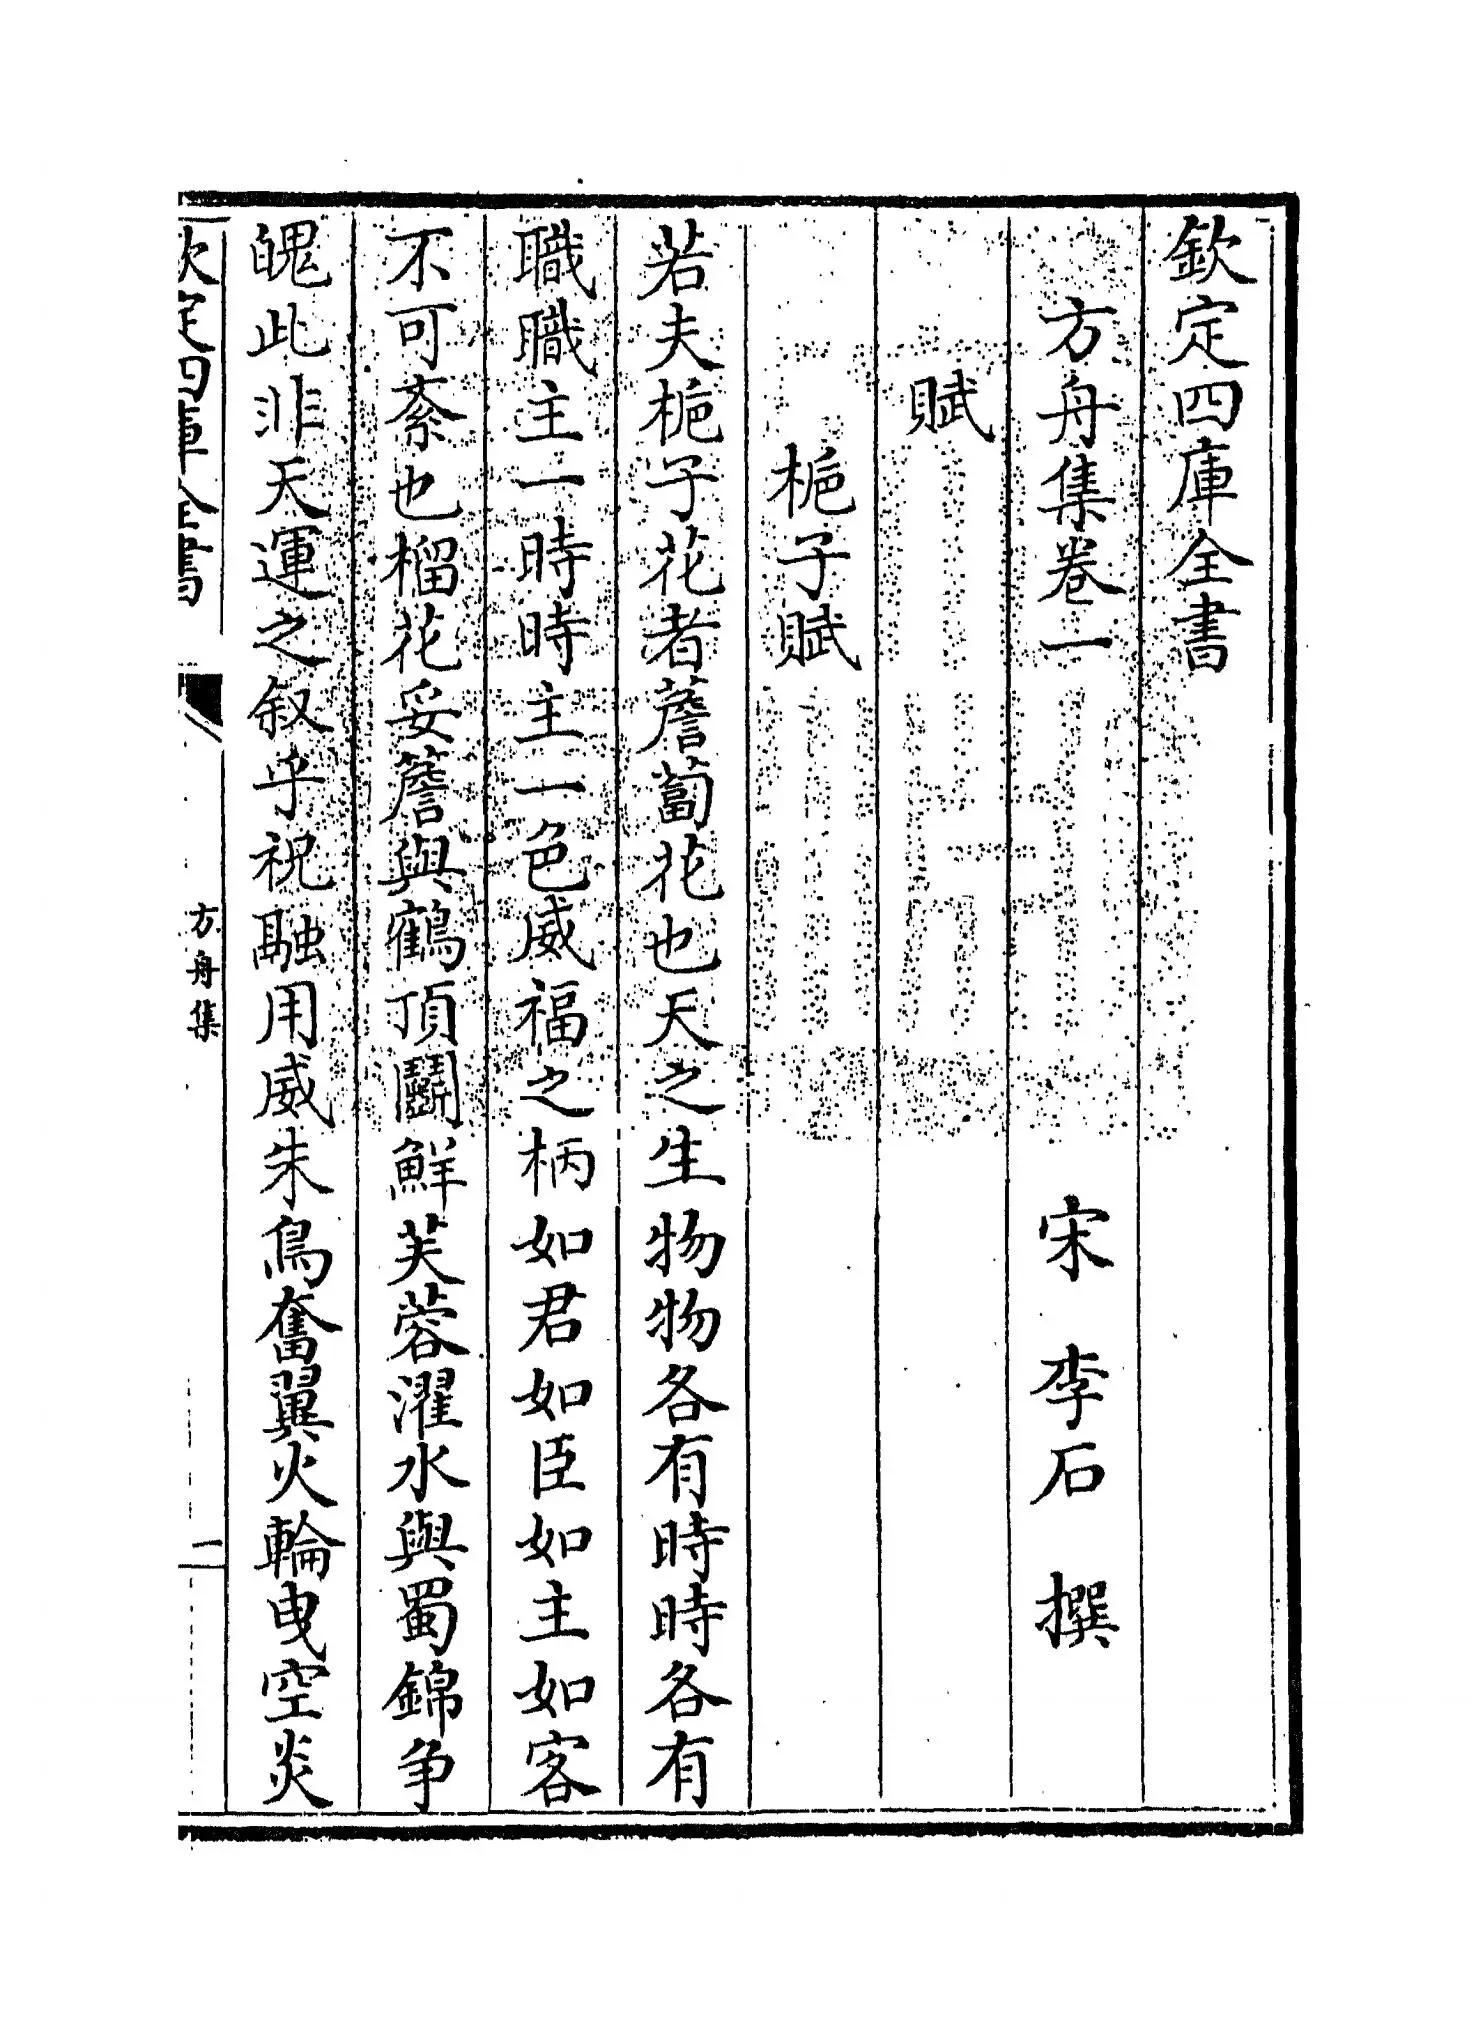 欽定四庫全書
方舟集卷一
宋 李石 撰
賦
梔子賦
若夫梔子花者薝蔔花也天之生物物各有時時各有
職職主一時時主一色威福之柄如君如臣如主如客
不可紊也榴花妥薝與鶴頂鬬鮮芙蓉濯水與蜀錦争
媿此非天運之叙乎祝融用威朱鳥奮翼火輪曳空炎
欽定四庫全書
方舟集
一